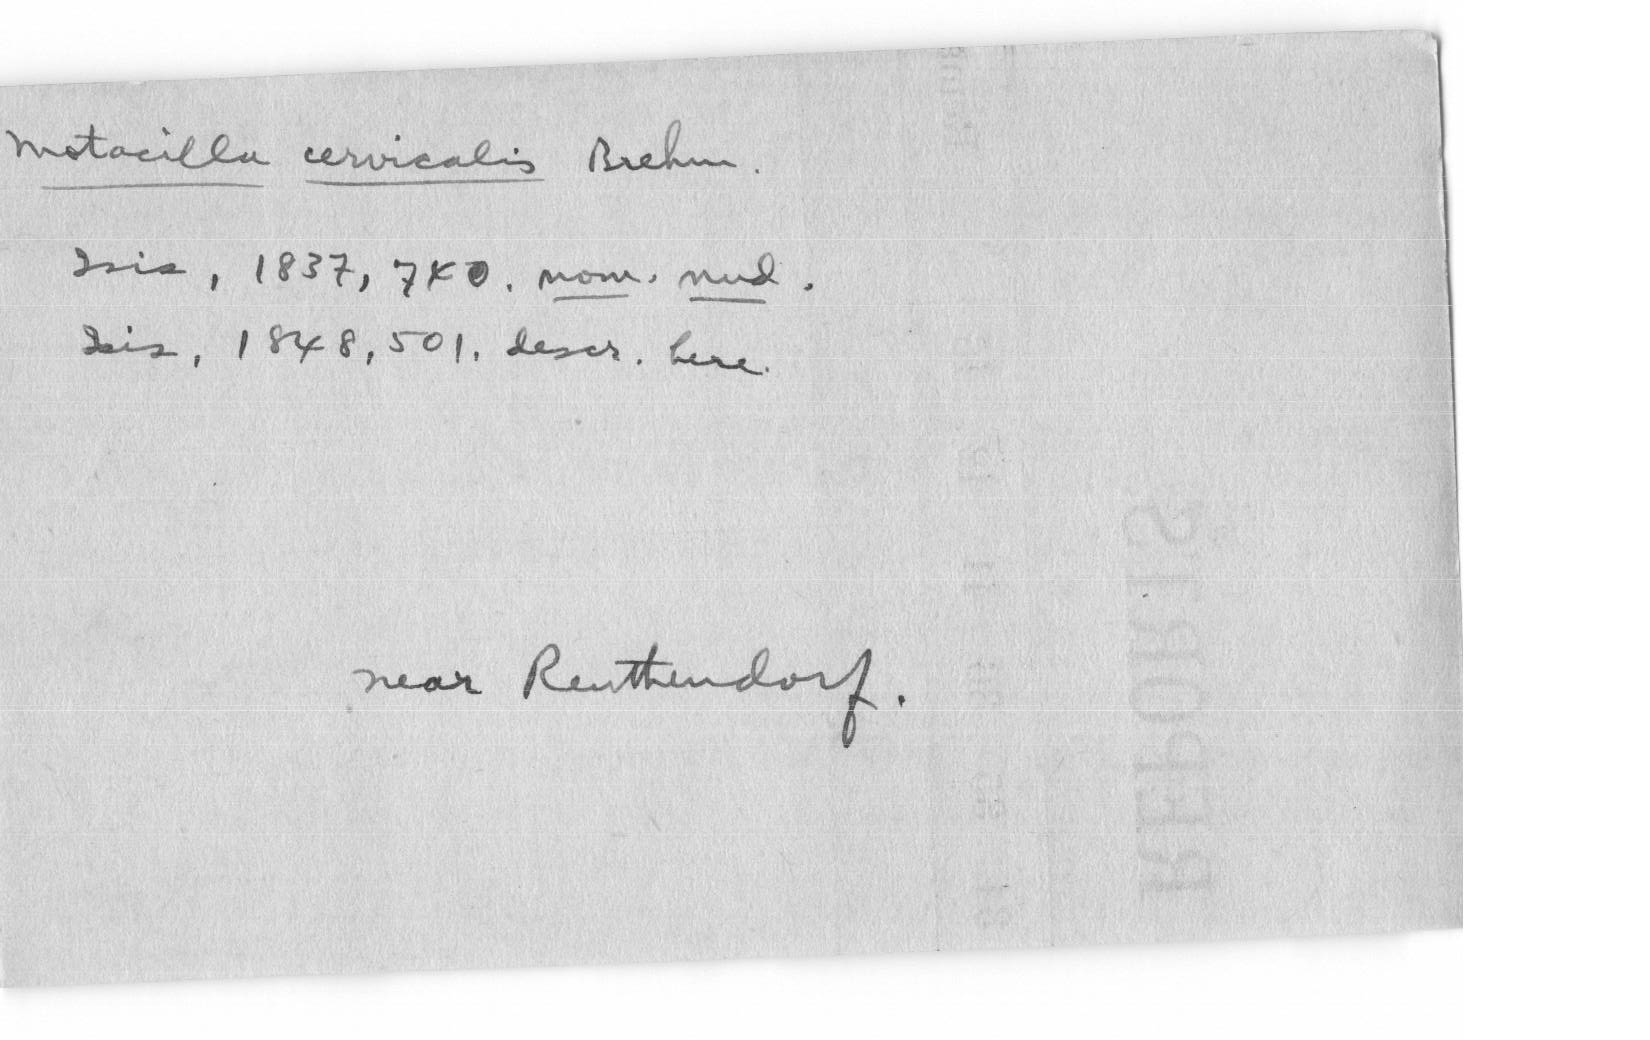 Motacilla cervicalis Brehm.
Isis, 1837, 740. nom. nud.
Isis, 1848, 501. descr. here.
near Reuthendorf.
REPORTS